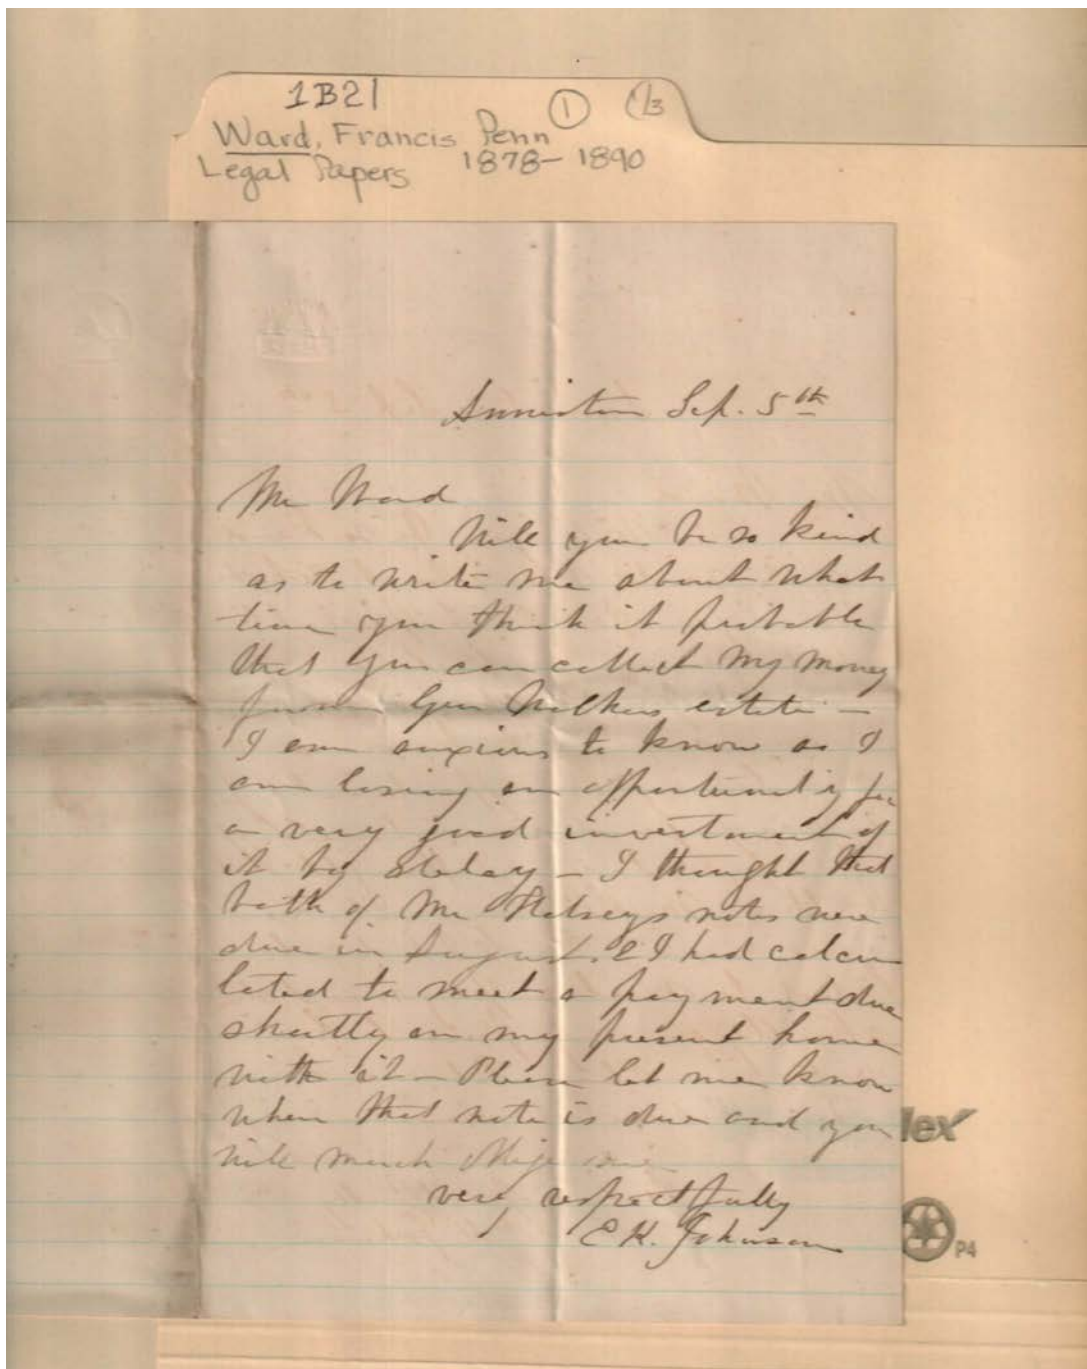 1B21 ① 1/3
Ward, Francis Penn
Legal Papers 1878-1890
Anniston Sep. 5th
Mr Ward
Will you be so kind
as to write me about what
time you think it probable
that you can collect my money
from Gen Walkers estate —
I am anxious to know as I
am losing an opportunity for
a very good investment of
it by delay — I thought that
both of Mr Halseys notes were
due in August. & I had calcu
lated to meet a payment due
shortly on my present home
with it — Please let me know
when that note is due and you
will much oblige me
very respectfully
E K. Johnson
lex
P4